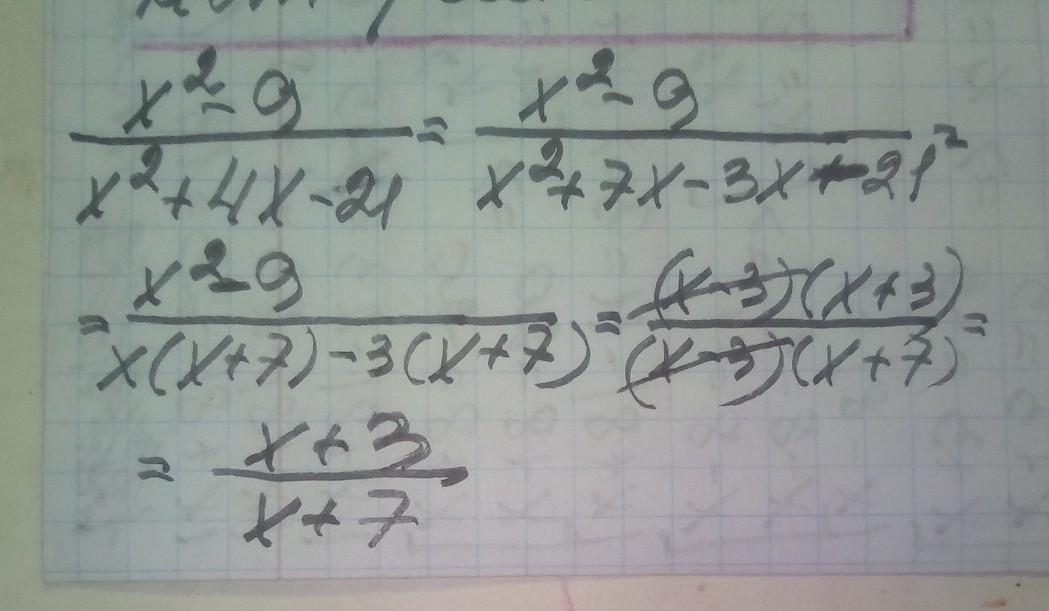 x²-9 / x²+4x-21 = x²-9 / x²+7x-3x-21 =
= x²-9 / x(x+7)-3(x+7) = (x-3)(x+3) / (x-3)(x+7) =
= x+3 / x+7